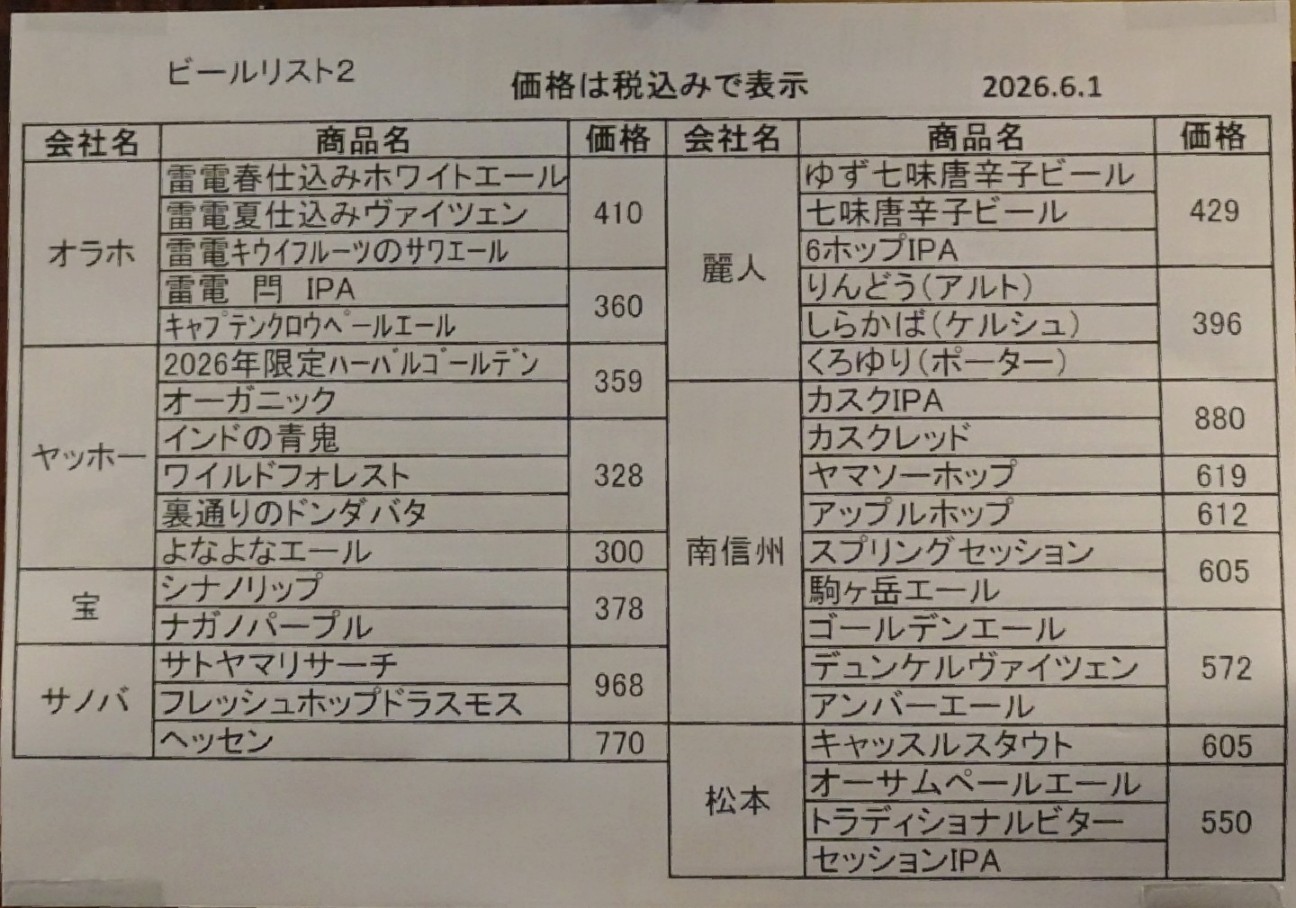 ビールリスト2 価格は税込みで表示 2026.6.1
会社名 商品名 価格
オラホ
雷電春仕込みホワイトエール
雷電夏仕込みヴァイツェン
雷電キウイフルーツのサワエール
410
雷電 閂 IPA
キャプテンクロウペールエール
360
ヤッホー
2026年限定ハーバルゴールデン
オーガニック
359
インドの青鬼
ワイルドフォレスト
裏通りのドンダバタ
328
よなよなエール 300
宝
シナノリップ
ナガノパープル
378
サノバ
サトヤマリサーチ
フレッシュホップドラスモス
968
ヘッセン 770
会社名 商品名 価格
麗人
ゆず七味唐辛子ビール
七味唐辛子ビール
6ホップIPA
429
りんどう(アルト)
しらかば(ケルシュ)
くろゆり(ポーター)
396
南信州
カスクIPA
カスクレッド
880
ヤマソーホップ 619
アップルホップ 612
スプリングセッション
駒ヶ岳エール
605
ゴールデンエール
デュンケルヴァイツェン
アンバーエール
572
松本
キャッスルスタウト 605
オーサムペールエール
トラディショナルビター
セッションIPA
550